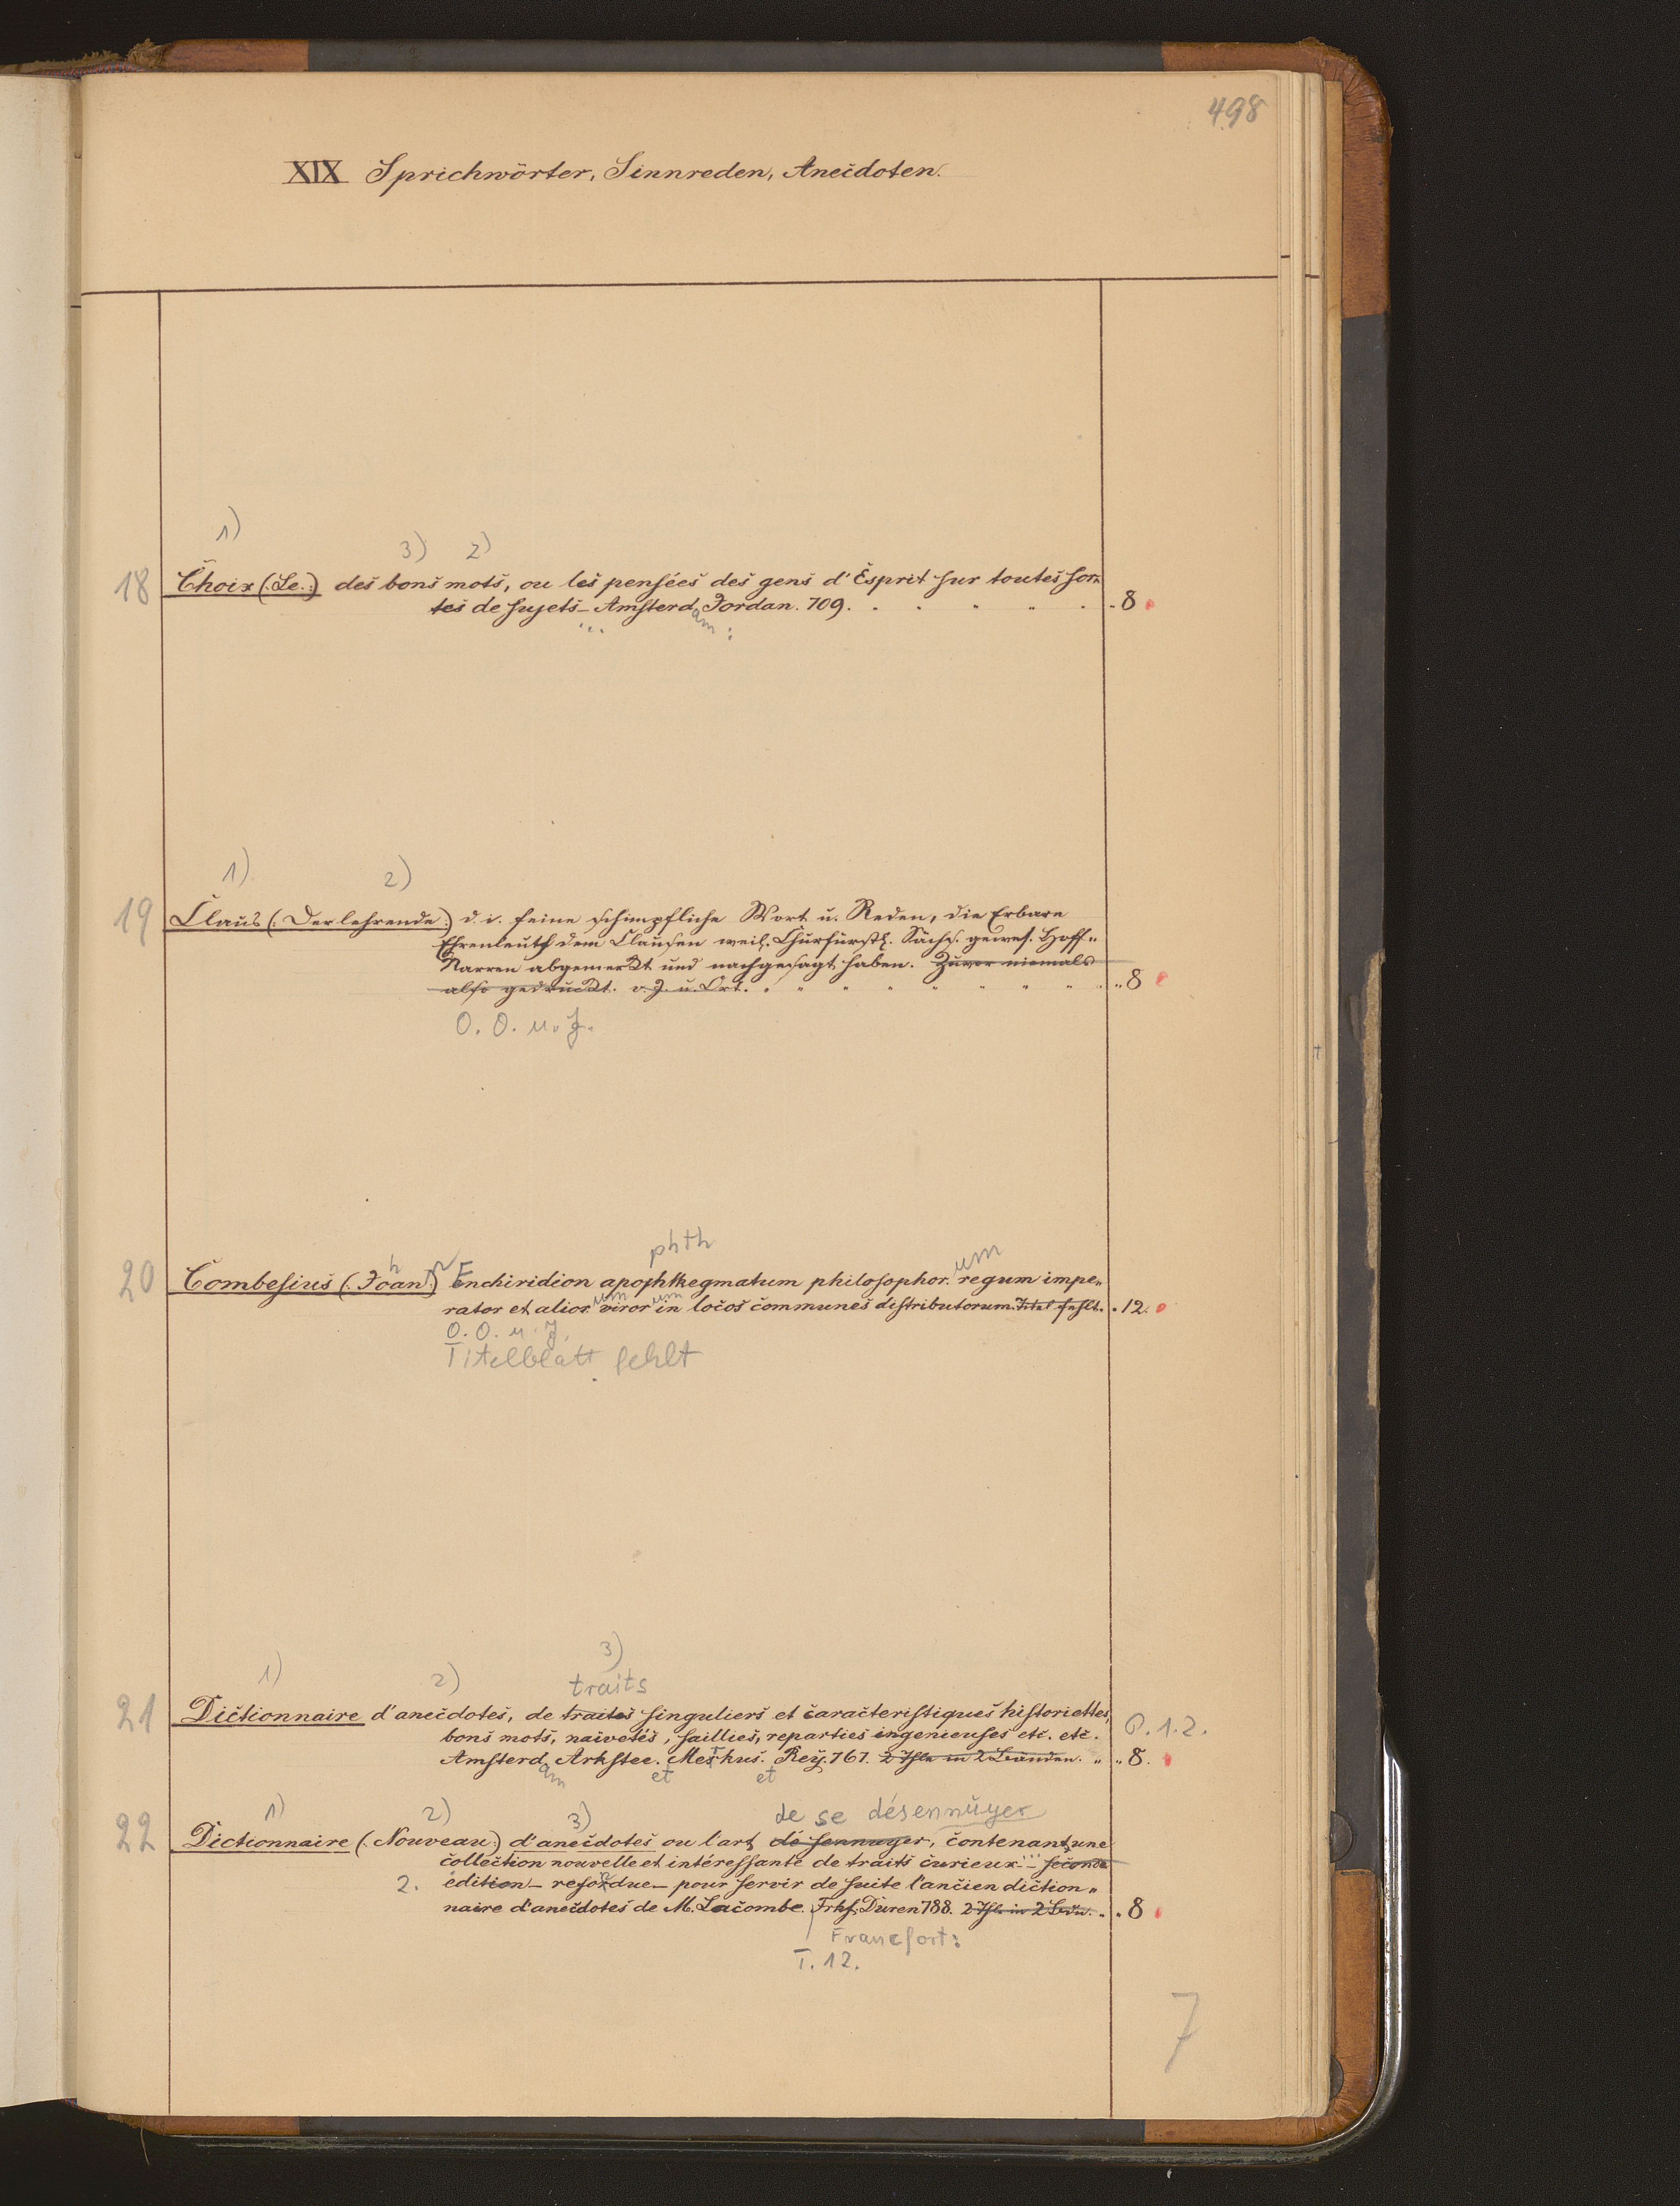 498
XIX Sprichwörter, Sinnreden, Anecdoten.
1)
3) 2)
18 Choix (:Le.:) des bons mots, ou les pensées des gens d'Esprit sur toutes sor-
tes de sujets - Amsterd. Jordan. 709. 8
... am :
1) 2)
19 Claus (: Der lehrende :) d. i. feine schimpfliche Wort u. Reden, die Erbare
Ehrenleuth dem Clausen weil. Churfürstl. Sächs. gewes. Hoff-
Narren abgemerkt und nachgesagt haben. Zuvor niemals
also gedruckt. o. J. u. Ort. 8
O. O. u. J.
phth
h n E um
20 Combesius (: Joan :) enchiridion apophthegmatum philosophor. regum impe-
um um
rator et alior. viror in locos communes distributorum. Titel fehlt. 12.
O. O. u. J.
Titelblatt fehlt
3)
1) 2) traits
21 Dictionnaire d'anecdotes, de traites singuliers et caracteristiques historiettes,
bons mots, naivetés, saillies, reparties ingenieuses etc. etc. P. 1.2.
Amsterd. Arkstee. Merkus. Rey. 767. 2 Thle in 2 Bänden. 8.
am et et
1) 2) 3) de se désennuyer
22 Dictionnaire (: Nouveau :) d'anecdotes ou l'art de sennuyer, contenant une
collection nouvelle et intéressante de traits curieux ... - seconde
2. edition - refondue - pour servir de suite l'ancien diction-
naire d'anecdotes de M. Lacombe. Frkf. Duren 788. 2 Thle in 2 Bdn. 8
Francfort:
T. 12.
7